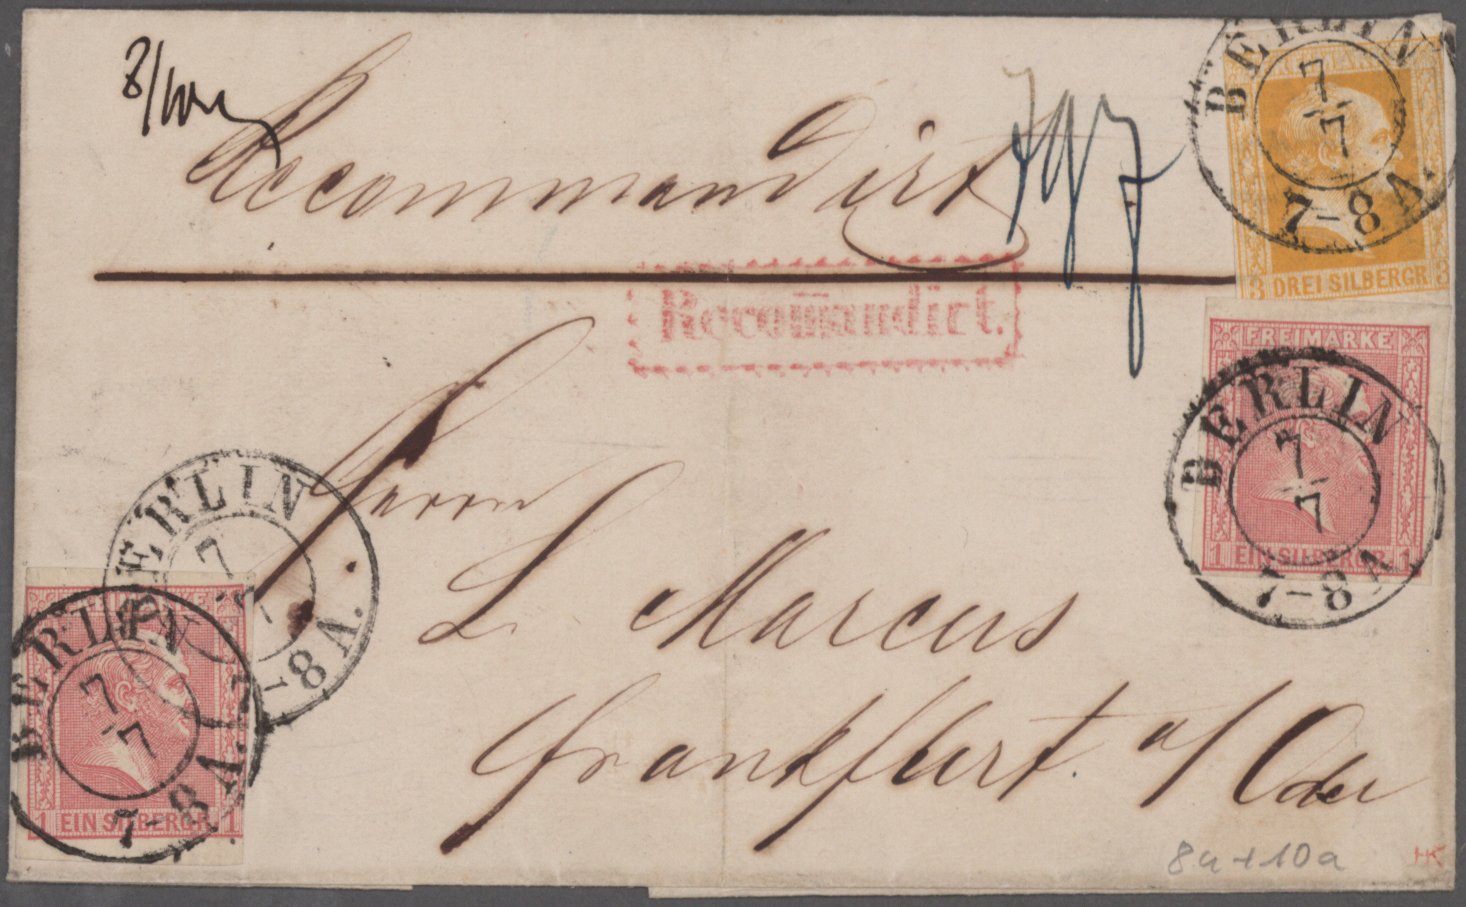 Recommandirt
Recomandirt.
BERLIN
7
7
7-8 A.
DREI SILBERGR.
3 3
FREIMARKE
BERLIN
7
7
7-8 A.
1 EIN SILBERGR. 1
Herrn
L. Marcus
Frankfurt. a/Oder
BERLIN
7
7
7-8 A.
BERLIN
7
7
7-8 A.
1 EIN SILBERGR. 1
8a+10a
HK